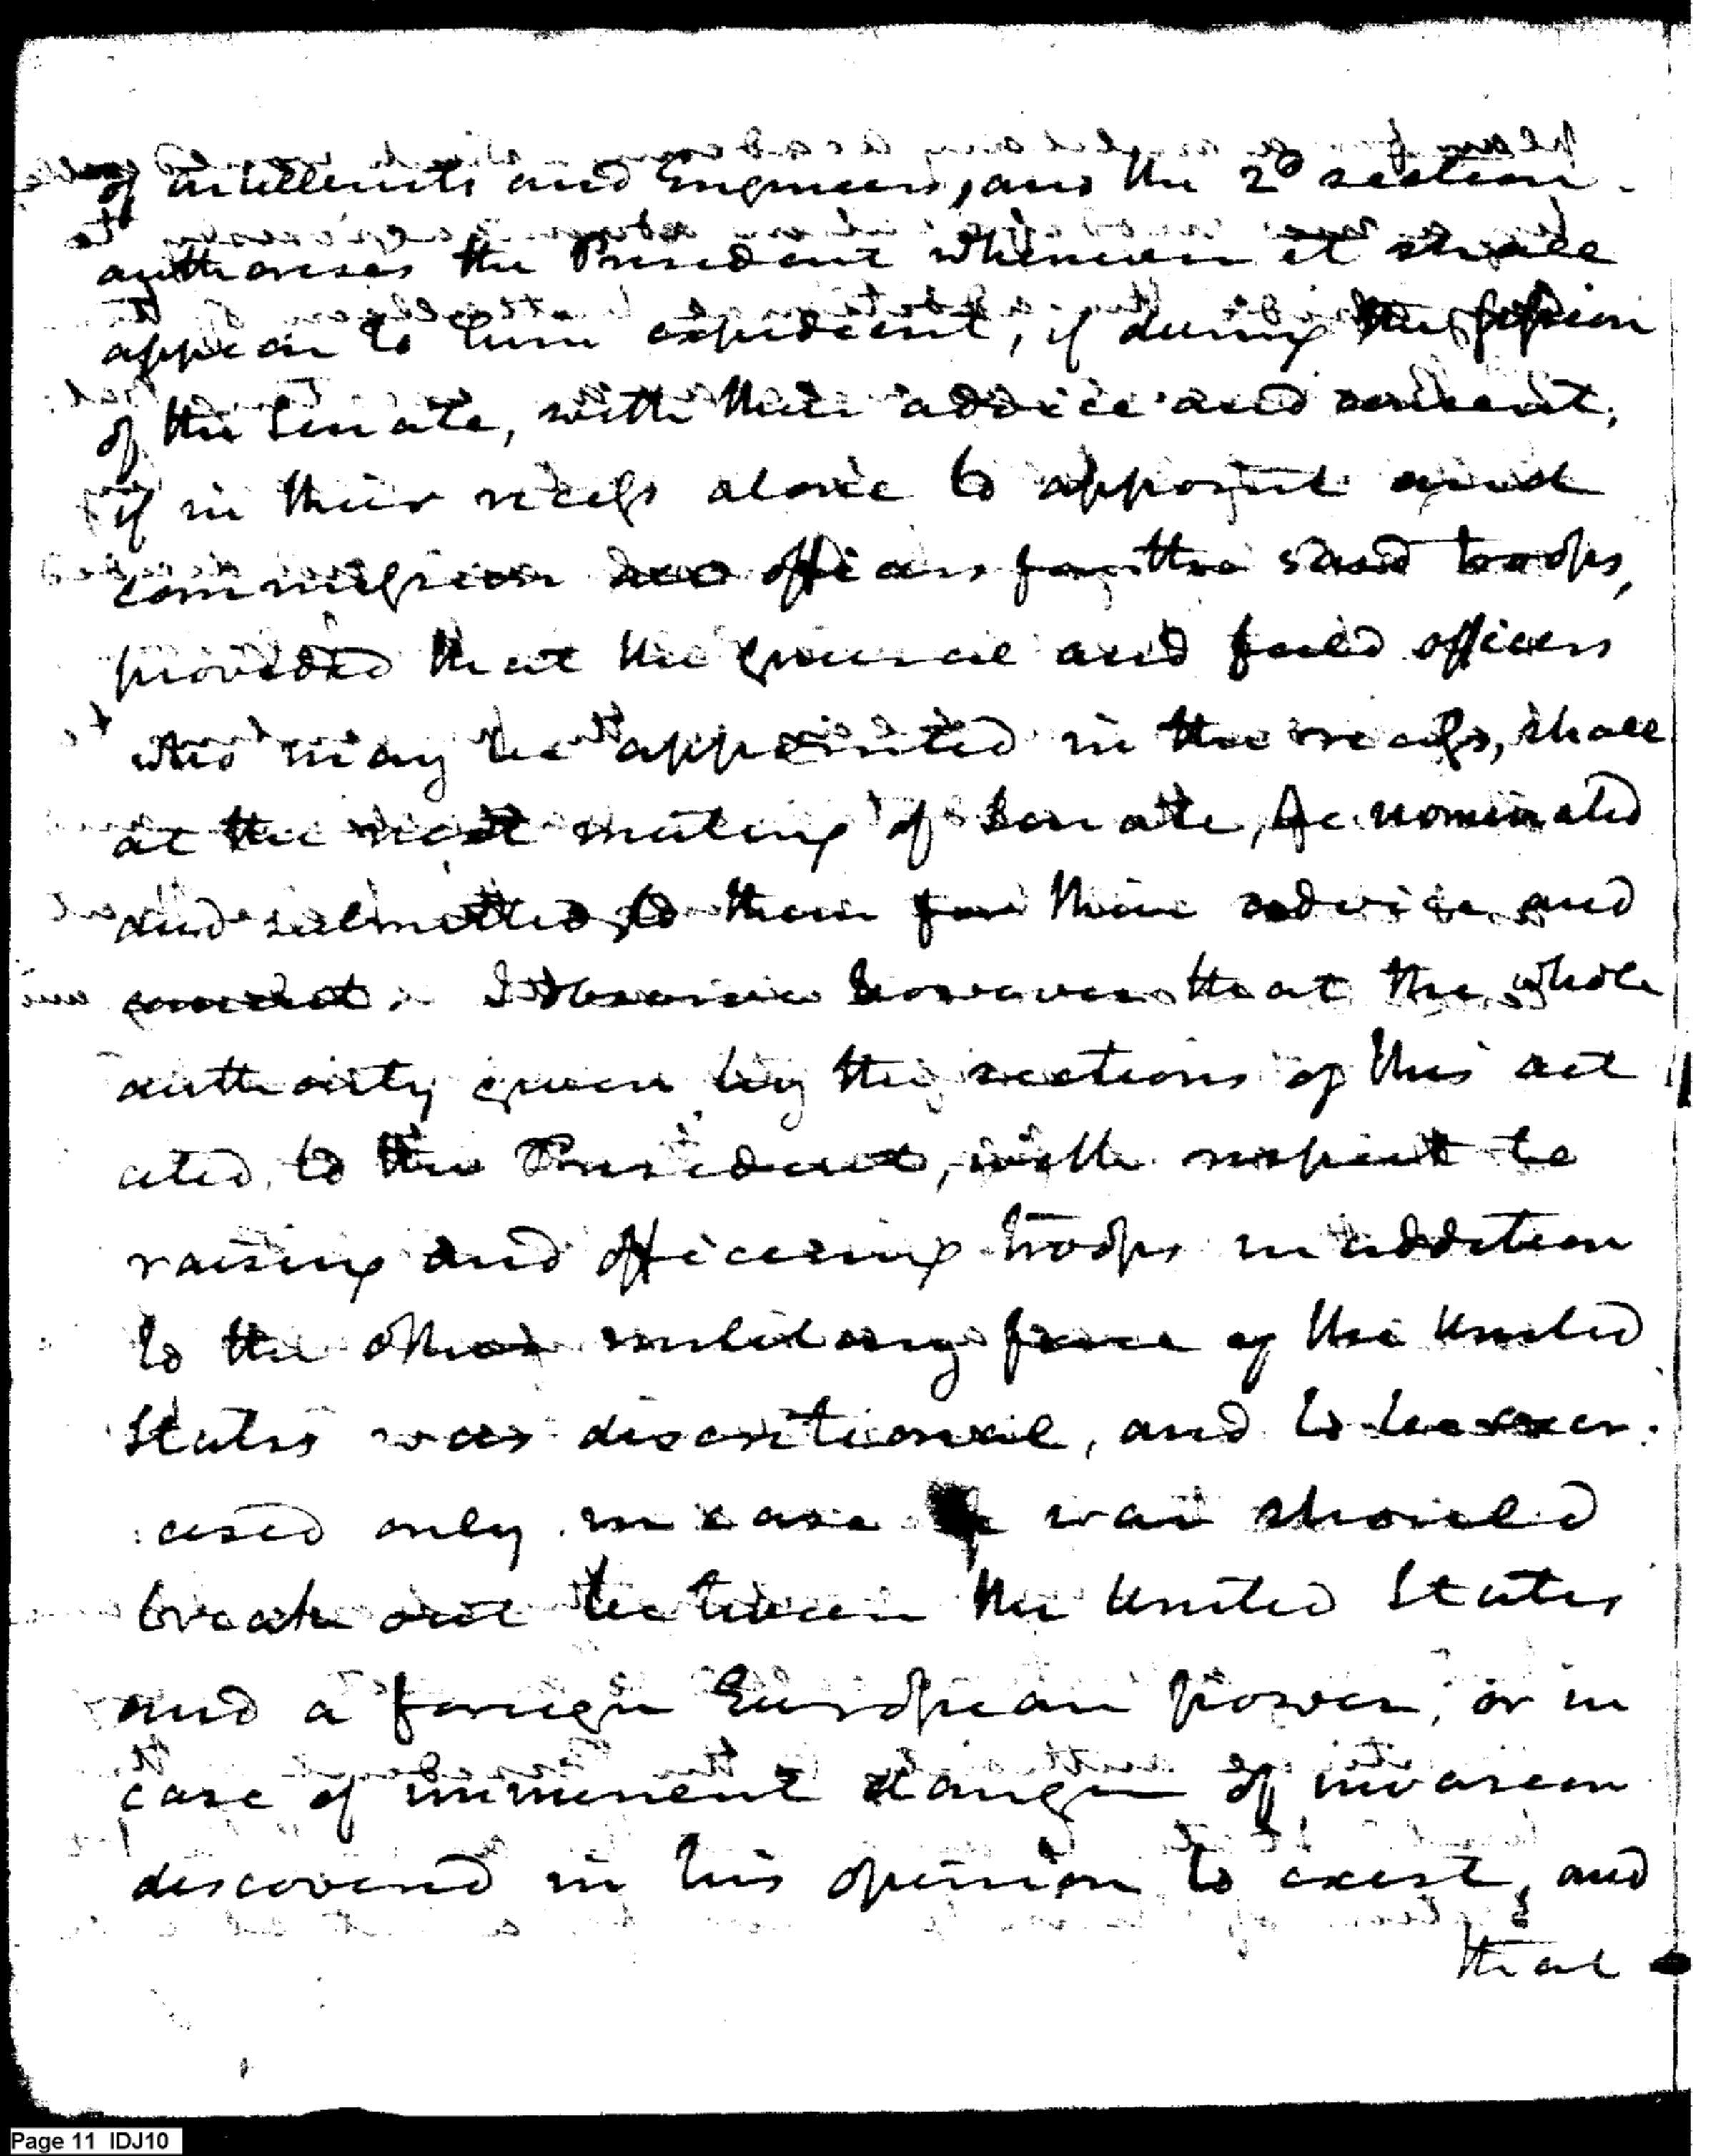 of artillerists and Engineers, and the 2d section
authorises the President whenever it shall
appear to him expedient, if during the session
of the Senate, with their advice and consent,
if in their recess alone to appoint and
commission all officers for the said troops,
provided that the general and field officers
who may be appointed in the recess, shall
at the next meeting of Senate, be nominated
and submitted to them for their advice and
consent. I observe however that the whole
authority given by the sections of this act
cited, to the President, with respect to
raising and officering troops in addition
to the other military force of the United
States was discretional, and to be exer-
cised only in case war should
break out between the United States
and a foreign European power, or in
case of imminent danger of invasion
discovered in his opinion to exist, and
that
Page 11 IDJ10